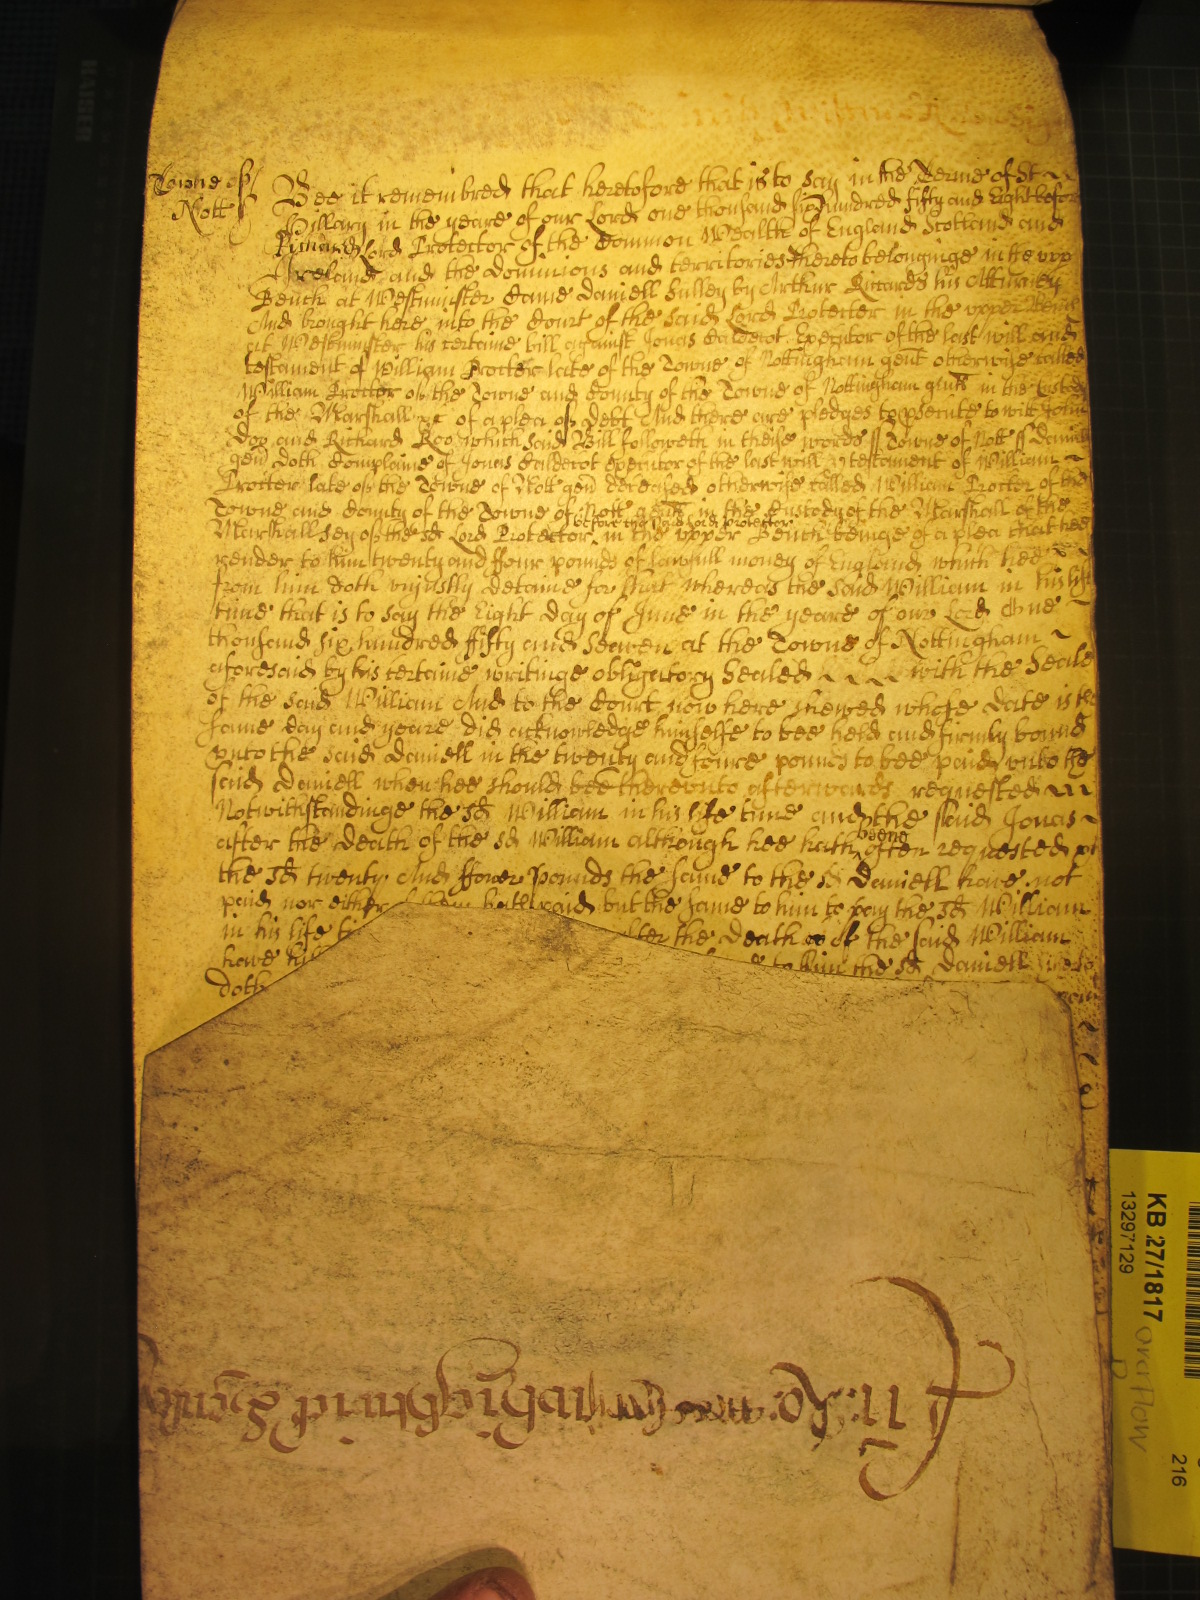 Towne of
Nott
Bee it remembred that heretofore that is to say in the Terme of St
Hillary in the yeare of our Lord one thousand six hundred fifty and Eight before
Richard Lord Protector of the Common Wealth of England Scotland and
Ireland and the dominions and territories thereto belonginge in the upp
Bench at Westminster Came Daniell Sulley by Arthur Riccards his Atturney
And brought here into the Court of the said Lord Protector in the upper Bench
at Westminster his certaine bill against Jonas Calderot Executor of the last will and
testament of William Procter late of the Towne of Nottingham gent otherwise called
William Procter of the Towne and County of the Towne of Nottingham gent in the Custody
of the Marshall &c of a plea of debt And there are pledges to psecute to witt John
Doo and Richard Roo which said Bill followeth in theise words ss Towne of Nott ss Daniell
gen doth Complaine of Jonas Calderot Executor of the last will & testament of William
Procter late of the Towne of Nott gen deceased otherwise called William Procter of the
Towne and County of the Towne of Nott gent in the Custody of the Marshall of the
before the said Lord Protector
Marshallsey of the sd Lord Protector in the upper Bench beinge of a plea that hee
render to him twenty and ffour pounds of lawfull money of England which hee
from him doth uniustly detaine for that whereas the said William in his life
time that is to say the Eight day of June in the yeare of our Lord One
thousand six hundred fifty and Seaven at the Towne of Nottingham
aforesaid by his certaine writinge obligatory Sealed with the Seale
of the said William And to the Court now here shewed whose date is the
same day and yeare did acknowledge himselfe to bee held and firmly bound
unto the said Daniell in the twenty and foure pounds to bee paid unto the
said Daniell when hee should bee thereunto afterwards requested
Notwithstandinge the sd William in his life time and the said Jonas
beene
after the death of the sd William although hee hath often requested
the sd twenty And ffower pounds the same to the sd Daniell have not
paid nor either of them hath paid but the same to him to pay the sd William
in his life after the death of the said William
have to him the sd Daniell
doth
KB 27/1817
13297129
216